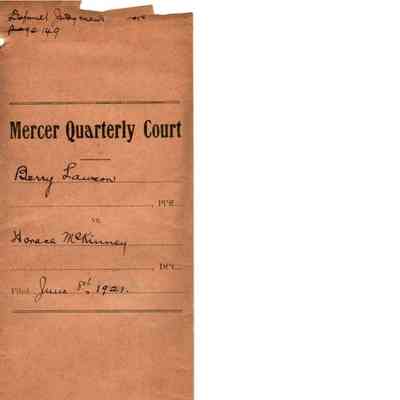 Default Judgment
page 149
Mercer Quarterly Court
Berry Lawson
, Ptff.
vs.
Horace McKinney
, Dft.
Filed June 8th, 1921.